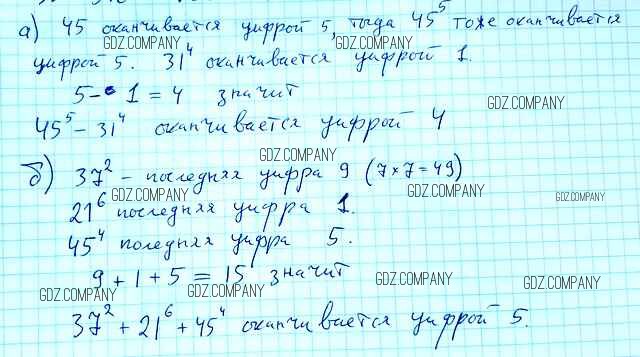 а) 45 оканчивается цифрой 5, тогда 45⁵ тоже оканчивается
GDZ.COMPANY GDZ.COMPANY
цифрой 5. 31⁴ оканчивается цифрой 1.
5 - 1 = 4 значит
GDZ.COMPANY
45⁵ - 31⁴ оканчивается цифрой 4
GDZ.COMPANY
б) 37² - последняя цифра 9 (7×7=49)
GDZ.COMPANY GDZ.COMPANY GDZ.COMPANY
21⁶ последняя цифра 1.
45⁴ поледняя цифра 5.
9 + 1 + 5 = 15 значит
GDZ.COMPANY GDZ.COMPANY GDZ.COMPANY GDZ.COMPANY
37² + 21⁶ + 45⁴ оканчивается цифрой 5.